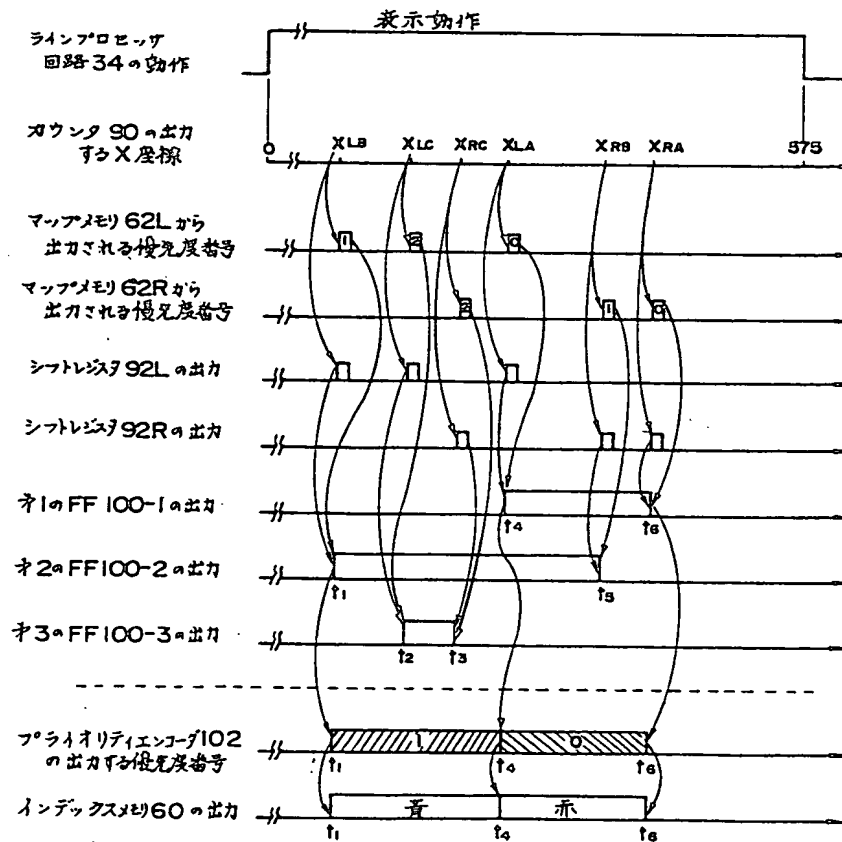 表示効作
ラインプロセッサ
回路34の効作
カウンタ90の出力
するX座標
0
XLB
XLC
XRC
XLA
XRB
XRA
575
マップメモリ62Lから
出力される優先度番号
1
2
0
マップメモリ62Rから
出力される優先度番号
2
1
0
シフトレジスタ92Lの出力
シフトレジスタ92Rの出力
才1のFF100-1の出力
t4
t6
才2のFF100-2の出力
t1
t5
才3のFF100-3の出力
t2
t3
プライオリティエンコーダ102
の出力する優先度番号
1
0
t1
t4
t6
インデックスメモリ60の出力
青
赤
t1
t4
t6